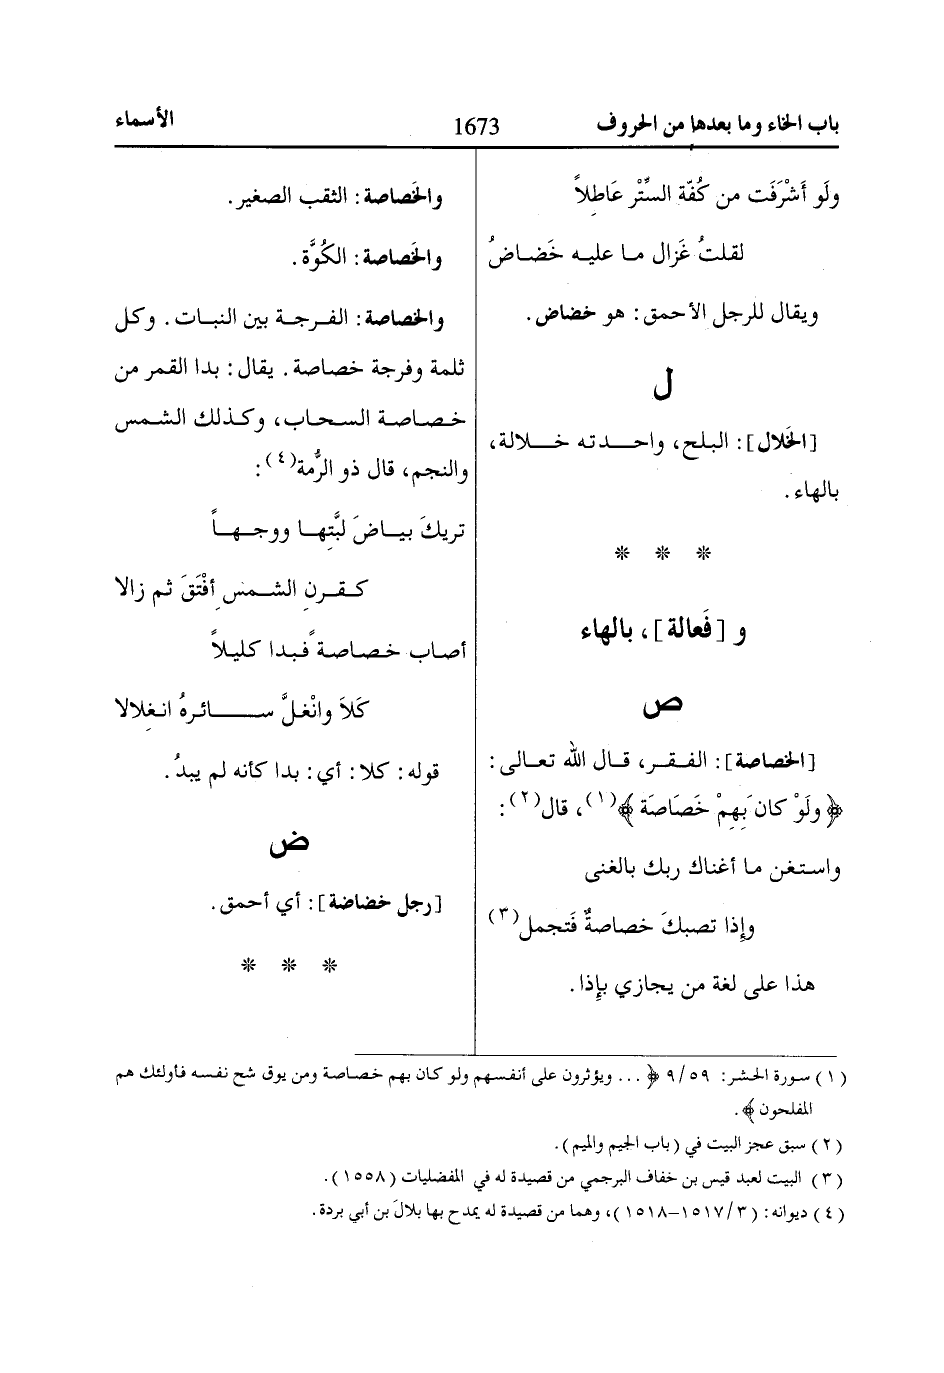 باب الخاء وما بعدها من الحروف
1673
الأسماء
ولَو أَشْرَفَت من كُفّة الستِّرْ عَاطِلاً
لقلتُ غَزال ما عليه خَضاضُ
ويقال للرجل الأحمق: هو خضاض.
ل
[الخَلال]: البلح، واحدته خلالة،
بالهاء.
* * *
و [فَعالة]، بالهاء
ص
[الخصاصة]: الفقر، قال الله تعالى:
﴿ولَوْ كان بَهِمْ خَصَاصَة﴾(١)، قال(٢):
واستغن ما أغناك ربك بالغنى
وإِذا تصبكَ خصاصةٌ فَتجمل(٣)
هذا على لغة من يجازي بإِذا.
والخَصاصة: الثقب الصغير.
والخَصاصة: الكُوَّة.
والخصاصة: الفرجة بين النبات. وكل
ثلمة وفرجة خصاصة. يقال: بدا القمر من
خصاصة السحاب، وكذلك الشمس
والنجم، قال ذو الرُّمة(٤):
تريكَ بياضَ لبَّتِها ووجهاً
كقرنِ الشمسِ أَفْتَقَ ثم زالا
أصاب خصاصةً فبدا كليلاً
كَلاَ وانْغلَّ سائرهُ انغِلالا
قوله: كلا: أي: بدا كأنه لم يبدُ.
ض
[رجل خضاضة]: أي أحمق.
* * *
(١) سورة الحشر: ٩/٥٩ ﴿... ويؤثرون على أنفسهم ولو كان بهم خصاصة ومن يوق شح نفسه فأولئك هم
المفلحون﴾.
(٢) سبق عجز البيت في (باب الجيم والميم).
(٣) البيت لعبد قيس بن خفاف البرجمي من قصيدة له في المفضليات (١٥٥٨).
(٤) ديوانه: (١٥١٧/٣-١٥١٨)، وهما من قصيدة له يمدح بها بلالَ بن أبي بردة.